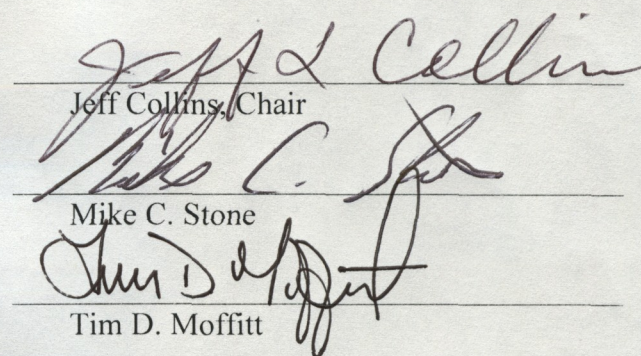 Jeff L Collin
Jeff Collins, Chair
Mike C. Stone
Mike C. Stone
Tim D Moffitt
Tim D. Moffitt